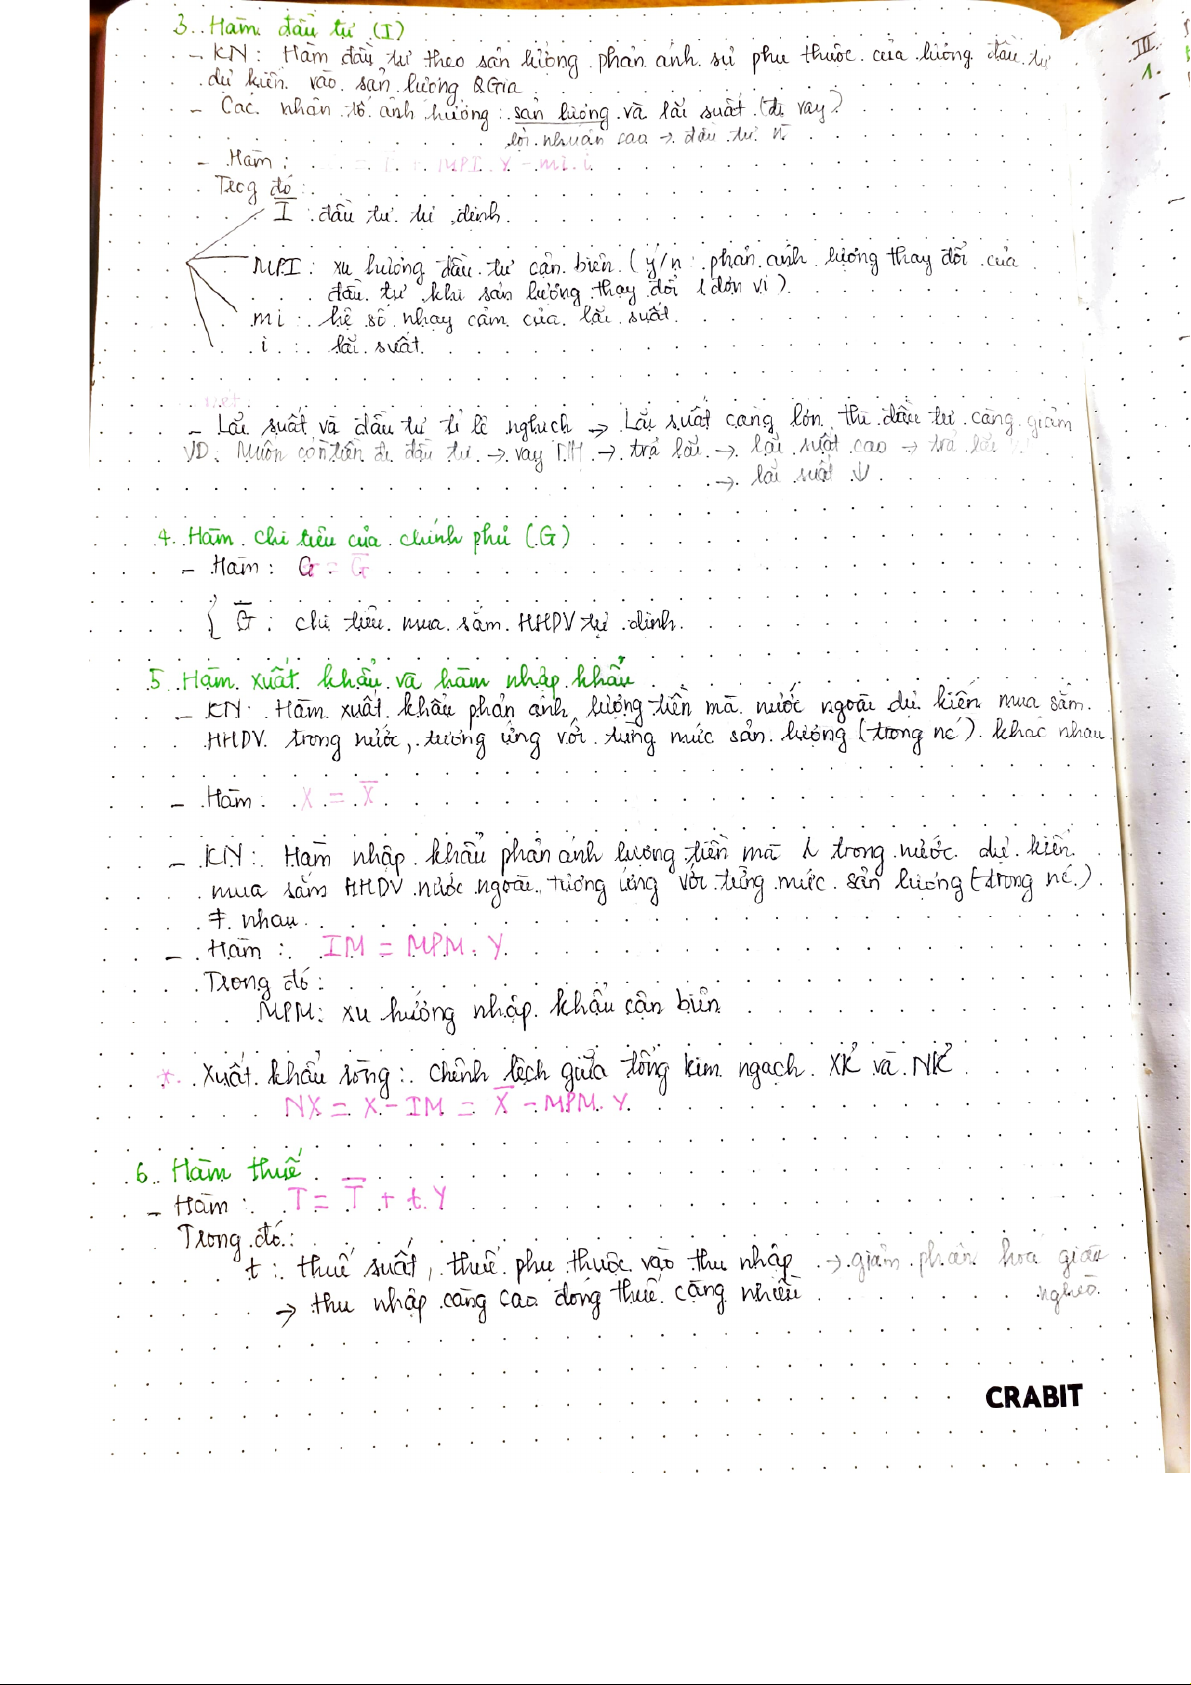 3. Hàm đầu tư (I)
- KN: Hàm đầu tư theo sản lượng phản ánh sự phụ thuộc của lượng đầu tư
dự kiến vào sản lượng QGia
- Các nhân tố ảnh hưởng: sản lượng và lãi suất (đi vay)
lợi nhuận cao → đầu tư
- Hàm: = I + MPI. Y - mi. i
Trog đó:
I : đầu tư tự định
MPI: xu hướng đầu tư cận biên (y/n: phản ánh lượng thay đổi của
đầu tư khi sản lượng thay đổi 1 đơn vị)
mi : hệ số nhạy cảm của lãi suất
i : lãi suất
- Lãi suất và đầu tư tỉ lệ nghịch → Lãi suất càng lớn thì đầu tư càng giảm
VD: Muốn có tiền đi đầu tư → vay NH → trả lãi → lãi suất cao → trả lãi
→ lãi suất ↓
4. Hàm chi tiêu của chính phủ (G)
- Hàm: G = G̅
{ G̅ : chi tiêu mua sắm HHDV tự định.
5. Hàm xuất khẩu và hàm nhập khẩu
- KN: Hàm xuất khẩu phản ánh lượng tiền mà nước ngoài dự kiến mua sắm
HHDV trong nước, tương ứng với từng mức sản lượng (trong nc) khác nhau
- Hàm: X = X̅
- KN: Hàm nhập khẩu phản ánh lượng tiền mà trong nước dự kiến
mua sắm HHDV nước ngoài tương ứng với từng mức sản lượng (trong nc)
≠ nhau
- Hàm: IM = MPM. Y
Trong đó:
MPM: xu hướng nhập khẩu cận biên
* Xuất khẩu ròng: chênh lệch giữa tổng kim ngạch XK và NK
NX = X - IM = X̅ - MPM. Y
6. Hàm thuế
- Hàm: T = T̅ + t. Y
Trong đó:
t : thuế suất, thuế phụ thuộc vào thu nhập → giảm phân hoá giàu
nghèo
→ thu nhập càng cao đóng thuế càng nhiều
CRABIT
III.
1.